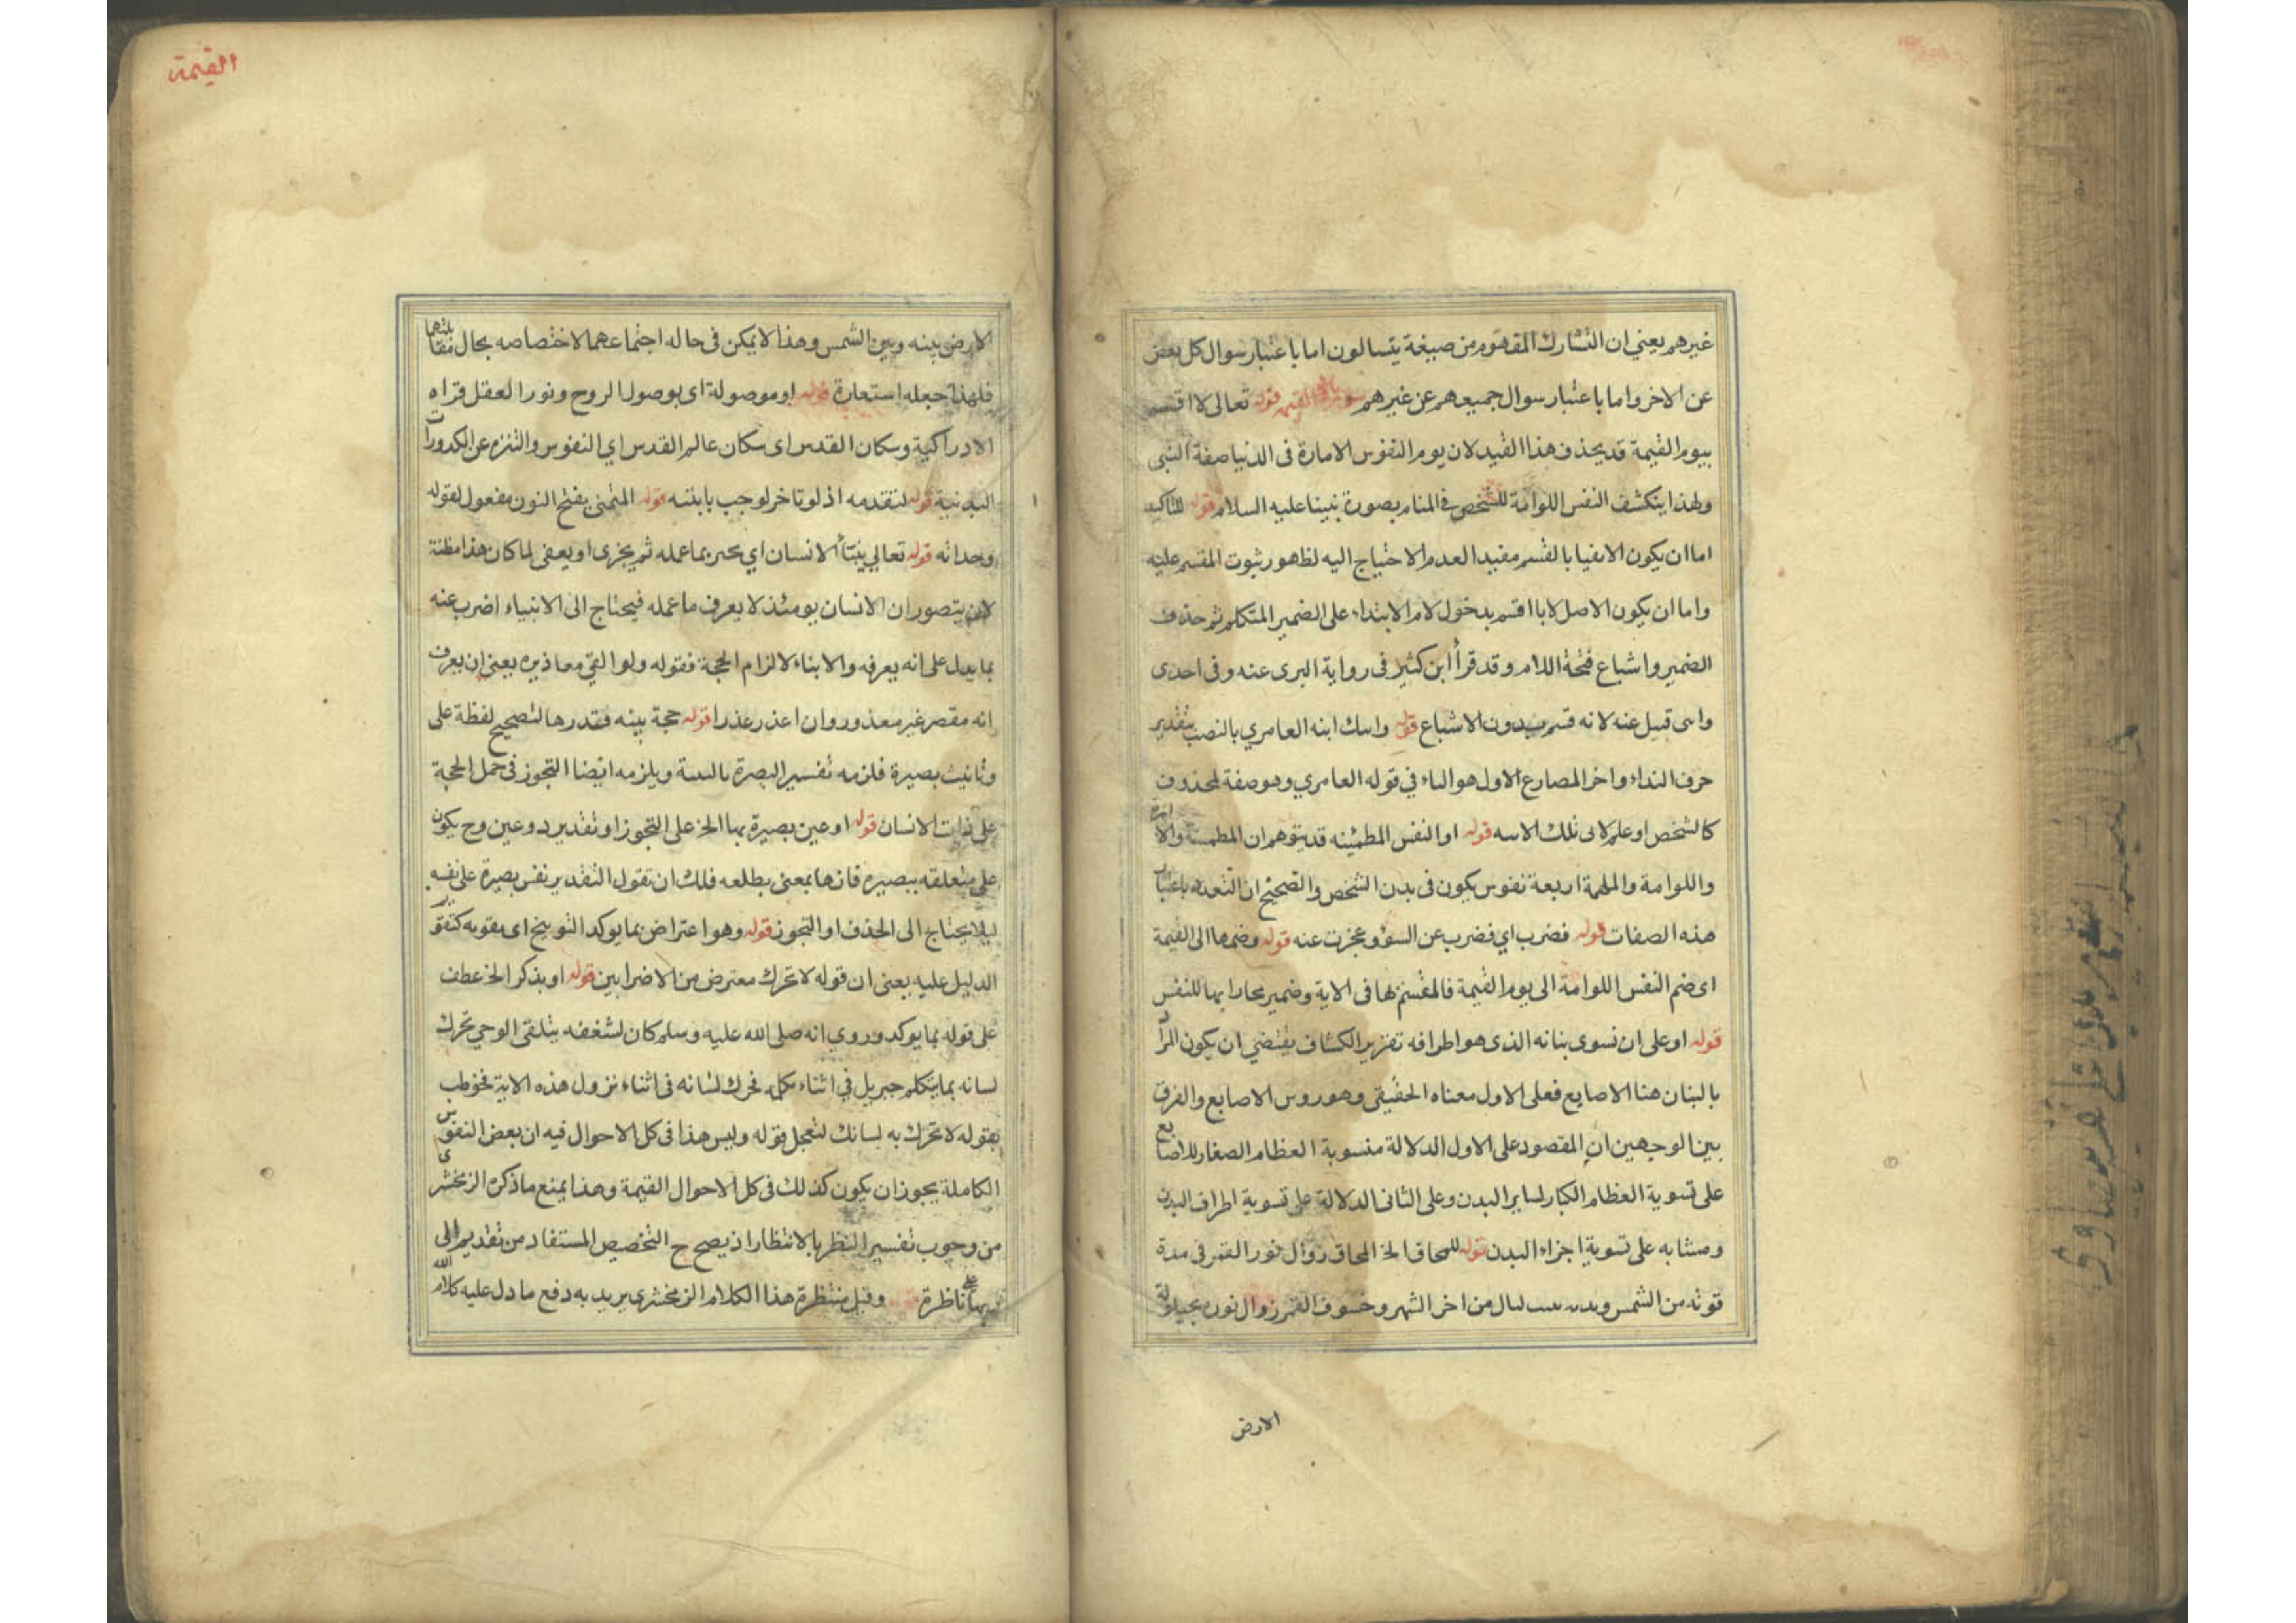 غيرهم يعني ان التشارك المفهوم من صيغة يتسالون اما باعتبار سوال كل بعض
عن الاخر واما باعتبار سوال جميعهم عن غيرهم سورة القيمة قوله تعالى لا اقسم
بيوم القيمة قد يحذف هذا القيد لان يوم النفوس الامارة فى الدنيا صفة النبى
ولهذا ينكشف النفس اللوامة للشخص في المنام بصورة نبينا عليه السلام قوله للتاكيد
اما ان يكون بالقسم مفيد العدم الاحتياج اليه لظهور ثبوت المقسم عليه
واما ان يكون الاصل لانا اقسم بدخول لام الابتداء على الضمير المتكلم ثم حذف
الضمير واشباع فتحة اللام وقد قرأ ابن كثير فى رواية البرى عنه وفى احدى
قنبل عنه لانه قسم بدون الاشباع قوله ابنه العامري بالنصب بتقدير
حرف النداء واخر المصارع الاول هو الياء في قوله العامري وهو صفة لمحذوف
كالشخص او علم لابى تلك قوله او النفس المطمئنه قد يتوهم ان والامارة
واللوامة والملهمة اربعة نفوس يكون فى بدن الشخص والصحيح ان التعدد باعتبار
هذه الصفات قوله فضرب اي فضرب عن السوؤ وعجزت عنه قوله وضمها الى القيمة
اى ضم النفس اللوامة الى يوم القيمة فالمقسم بها فى الاية وضمير للنفس
قوله او على ان نسوى بنانه الذى هو اطرافه تقرير الكشاف يقتضي ان يكون المراد
بالبنان هنا الاصابع فعلى الاول معناه الحقيقى وهو روس الاصابع والفرق
بين الوجهين ان المقصود على الاول الدلالة منسوبة العظام الصغار للاصابع
على تسوية العظام الكبار لساير البدن وعلى الثانى الدلالة على تسوية اطراف البدن
ومشابه على تسوية اجزاء البدن قوله للمحاق الخ المحاق زوال نور القمر فى مدة
قوته من الشمس ليال من اخر الشهر وخسوف القمر زوال نوره بحيلولة
الارض
القيمة
الارض بينه وبين الشمس وهذا لا يمكن فى حاله اجتماعهما لاختصاصه بحال مقابلتهما
فلهذا جعله استعارة قوله او موصولة اى بوصول الروح ونور العقل قراه
الادراكية وسكان القدس اى سكان عالم القدس اي النفوس والتنزه عن الكدورات
البدنية قوله لتقدمه اذ لو تاخر لوجب قوله المتمنى بفتح النون مفعول لقوله
وجدانه قوله تعالى ينبّأ الانسان اي يخبر بما عمله ثم يجزى او يعفى لما كان هذا مظنة
لان يتصور ان الانسان يومئذ لا يعرف ما عمله فيحتاج الى الانبياء اضرب عنه
بما يدل على انه يعرفه والانباء لالزام الحجة فقوله ولو القي معاذيره يعني ان يعرف
انه مقصر غير معذور وان اعذر عذرا قوله حجة بينه فقدرها لتصحيح لفظة على
وتانيث بصيرة فلزمه تفسير البصرة ويلزمه ايضا التجوز فى حمل الحجة
على ذات الانسان قوله او عين بصيرة بها الخ على التجوز او تقدير ذو عين وح يكون
على متعلقه ببصيره فانها بمعنى يطلعه فلك ان تقول التقدير نفس بصيرة على نفسه
ليلا يحتاج الى الحذف او التجوز قوله وهو اعتراض بما يوكد التوبيخ اى يقويه كتقوية
الدليل عليه يعنى ان قوله لا تحرك معترض من الاضرابين قوله او بذكر الخ عطف
على قوله بما يوكد وروي انه صلى الله عليه وسلم كان لشغفه بتلقى الوحي تحرك
لسانه بما يتكلم جبريل في اثناء فحرك لسانه فى اثناء نزول هذه الاية فخوطب
بقوله لا تحرك به لسانك لتعجل قوله وليس هذا فى كل الاحوال فيه ان بعض النفوس
الكاملة يجوز ان يكون كذلك فى كل الاحوال القيمة وهذا يمنع ما ذكره الزمخشرى
من وجوب تفسير النظر بالانتظار اذ يصح ح التخصيص المستفاد من تقديم الى
ربها على ناظرة قوله وقيل منتظرة هذا الكلام الزمخشرى يريد به دفع ما دل عليه كلام الله